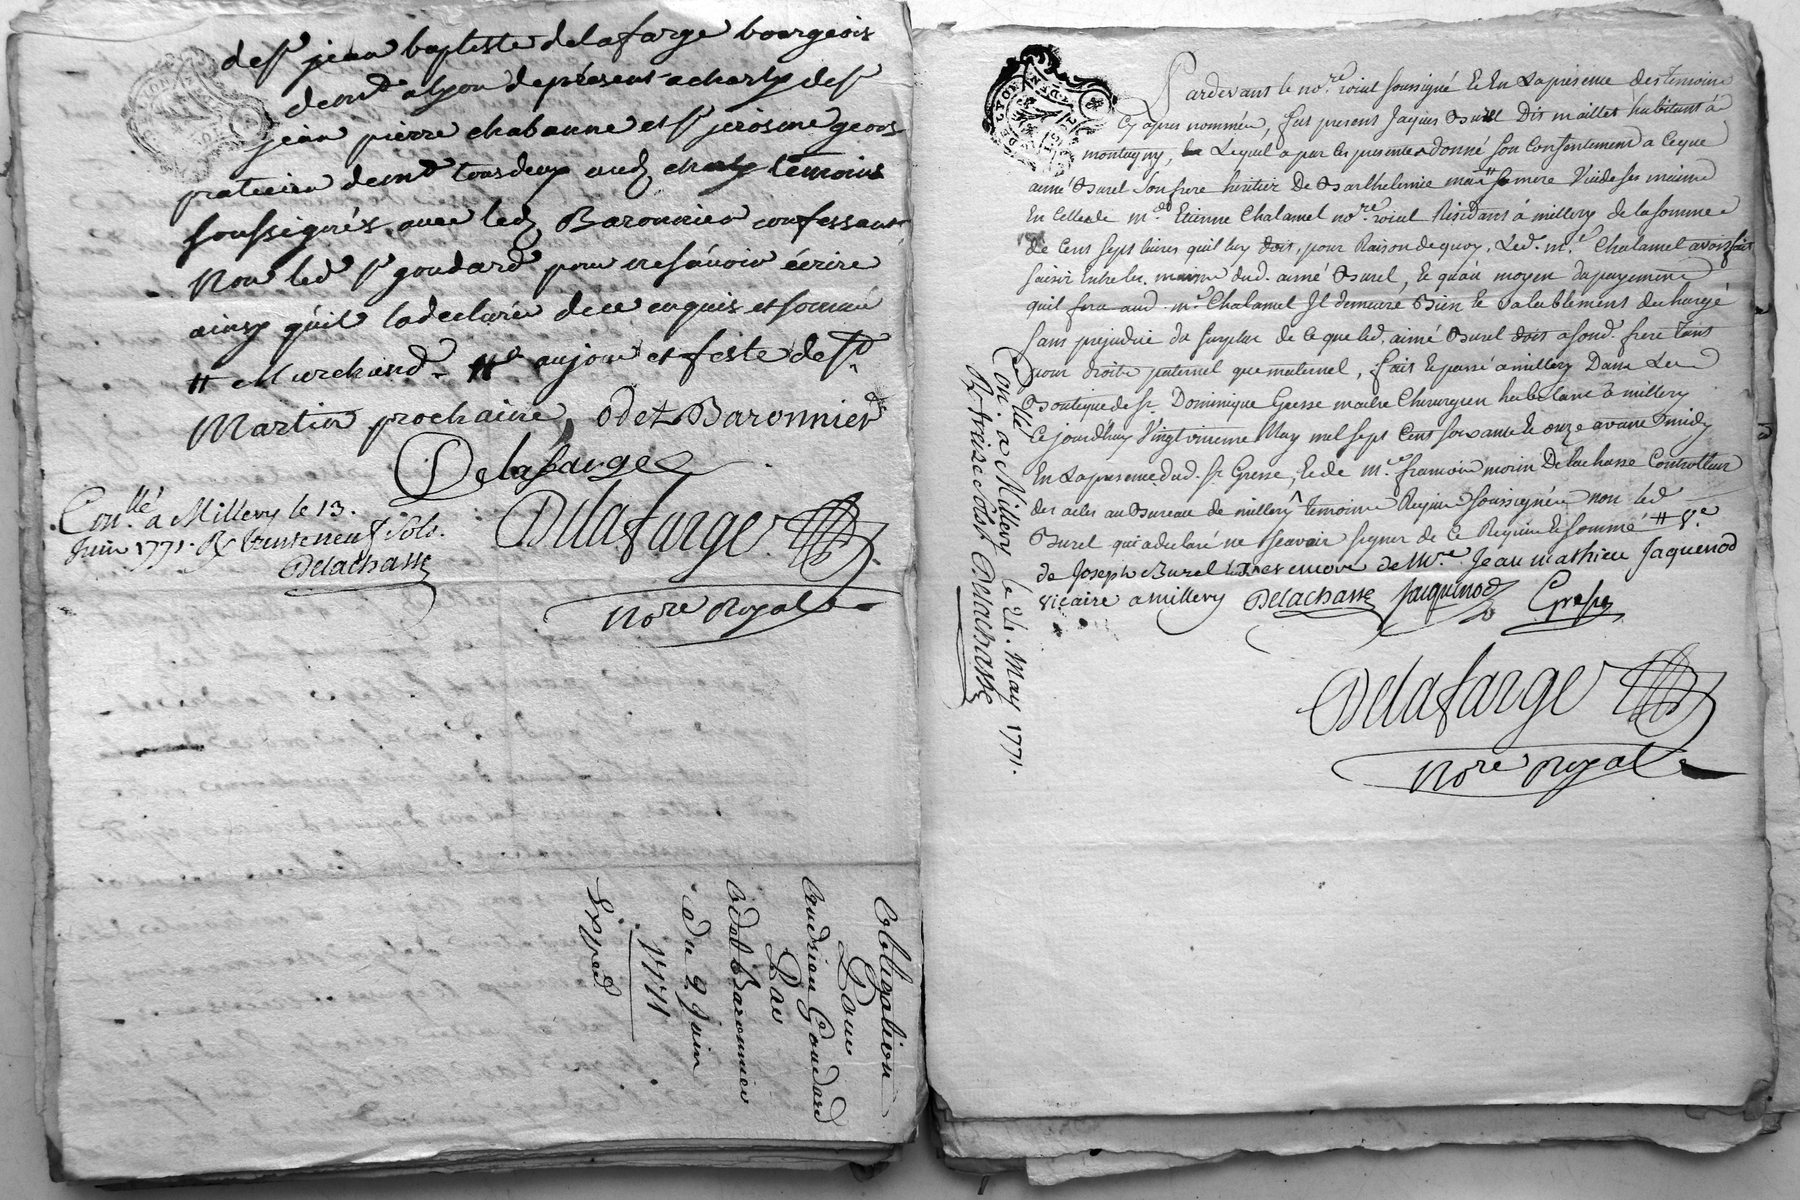 de sr jean baptiste delafarge bourgeois
demt a lyon de présent a charly de sr
jean pierre chabanne et sr jerosme
praticien demt tous deux aud charly témoins
soussignés avec led Baronnier confessant
Non led sr goudard pour ne sçavoir écrire
ainsy qu'il la declaré de ce enquis et sommé
# Marchand. # au jour et feste de St
Martin prochaine, odet Baronnier
Delafarge
Conllé a Millery le 13.
Juin 1771. Rx trente neuf sols.
Delachasse
Delafarge
Nore Royal
Obligation
Pour
Goudard
Par
Odet Baronnier
du 9 juin
1771
Pardevant le nore royal soussigné & En La présence des temoins
Cy apres nommés, fut present Jaques Burel Dit maillet habitant à
montagny, Lequel a par les presentes donné son Consentement a Ceque
aimé Burel son frere heritier De Barthelemie sa mere Vuide ses mains
En Celles de me Etienne Chalamel nore royal Residant à millery de la somme
de Cent sept livres quil luy doit, pour Raison de quoy, Led. me Chalamel avoit fait
saisir Entre les mains dud. aimé Burel, & qu'au moyen du payement
quil fera aud me Chalamel Il demeure Bien & valablement dechargé
sans prejudice du surplus de ce que led. aimé Burel doit a sond. frere tant
pour droits paternel que maternel, fait & passé a millery Dans La
Boutique de sr. Dominique Gresse maitre Chirurgien habitant a millery
Ce jourdhuy Vingt May mil sept Cent soixante & onze avant midy
En La presence dud. sr Gresse, & de me francois morin Delachasse Controlleur
des actes au Bureau de millery temoins Requis & soussignés non led
Burel qui a declaré ne sçavoir signer de ce Requis & sommé #
de Joseph Burel & de Jean mathieu Jaquenod
vicaire a millery Delachasse Jaquenod Gresse
Con.llé a Millery le 24. May 1771.
Rx treize sols Delachasse
Delafarge
Nore Royal